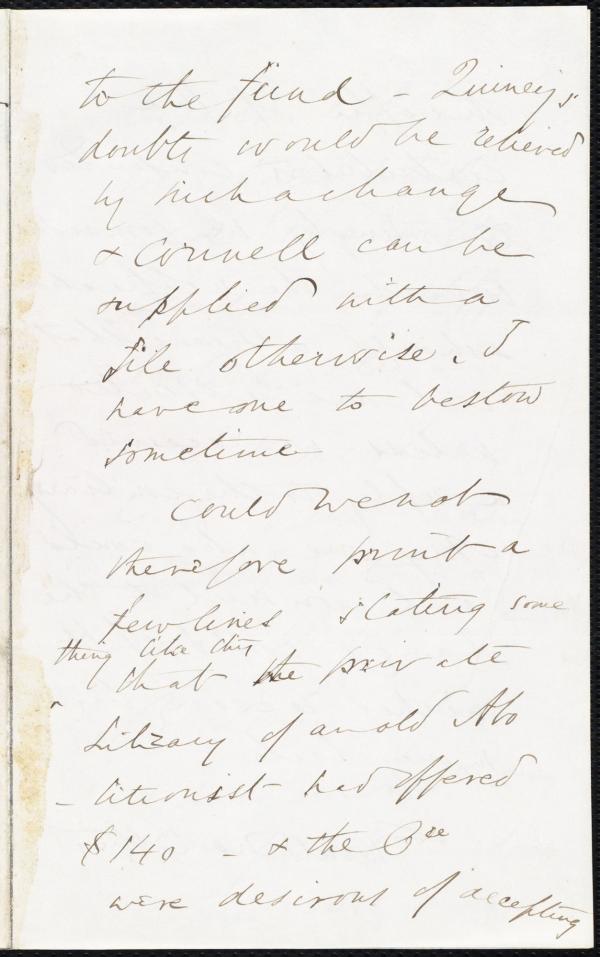 to the fund - Quincy's
doubts would be relieved
by such a change
& Cornell can be
supplied with a
file otherwise. I
have one to bestow
sometime
Could we not
therefore print a
few lines stating some
thing like this
that the private
Library of an old Abo
litionist had offered
$140 - & the Cee
were desirous of accepting